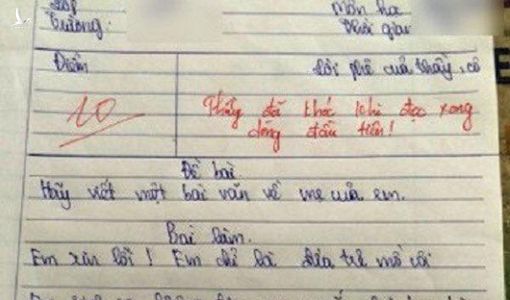 Lớp
Môn học
Trường:
Thời gian
Điểm
Lời phê của thầy, cô
10
Thầy đã khóc khi đọc xong
dòng đầu tiên!
Đề bài
Hãy viết một bài văn về mẹ của em.
Bài làm.
Em xin lỗi! Em chỉ là đứa trẻ mồ côi